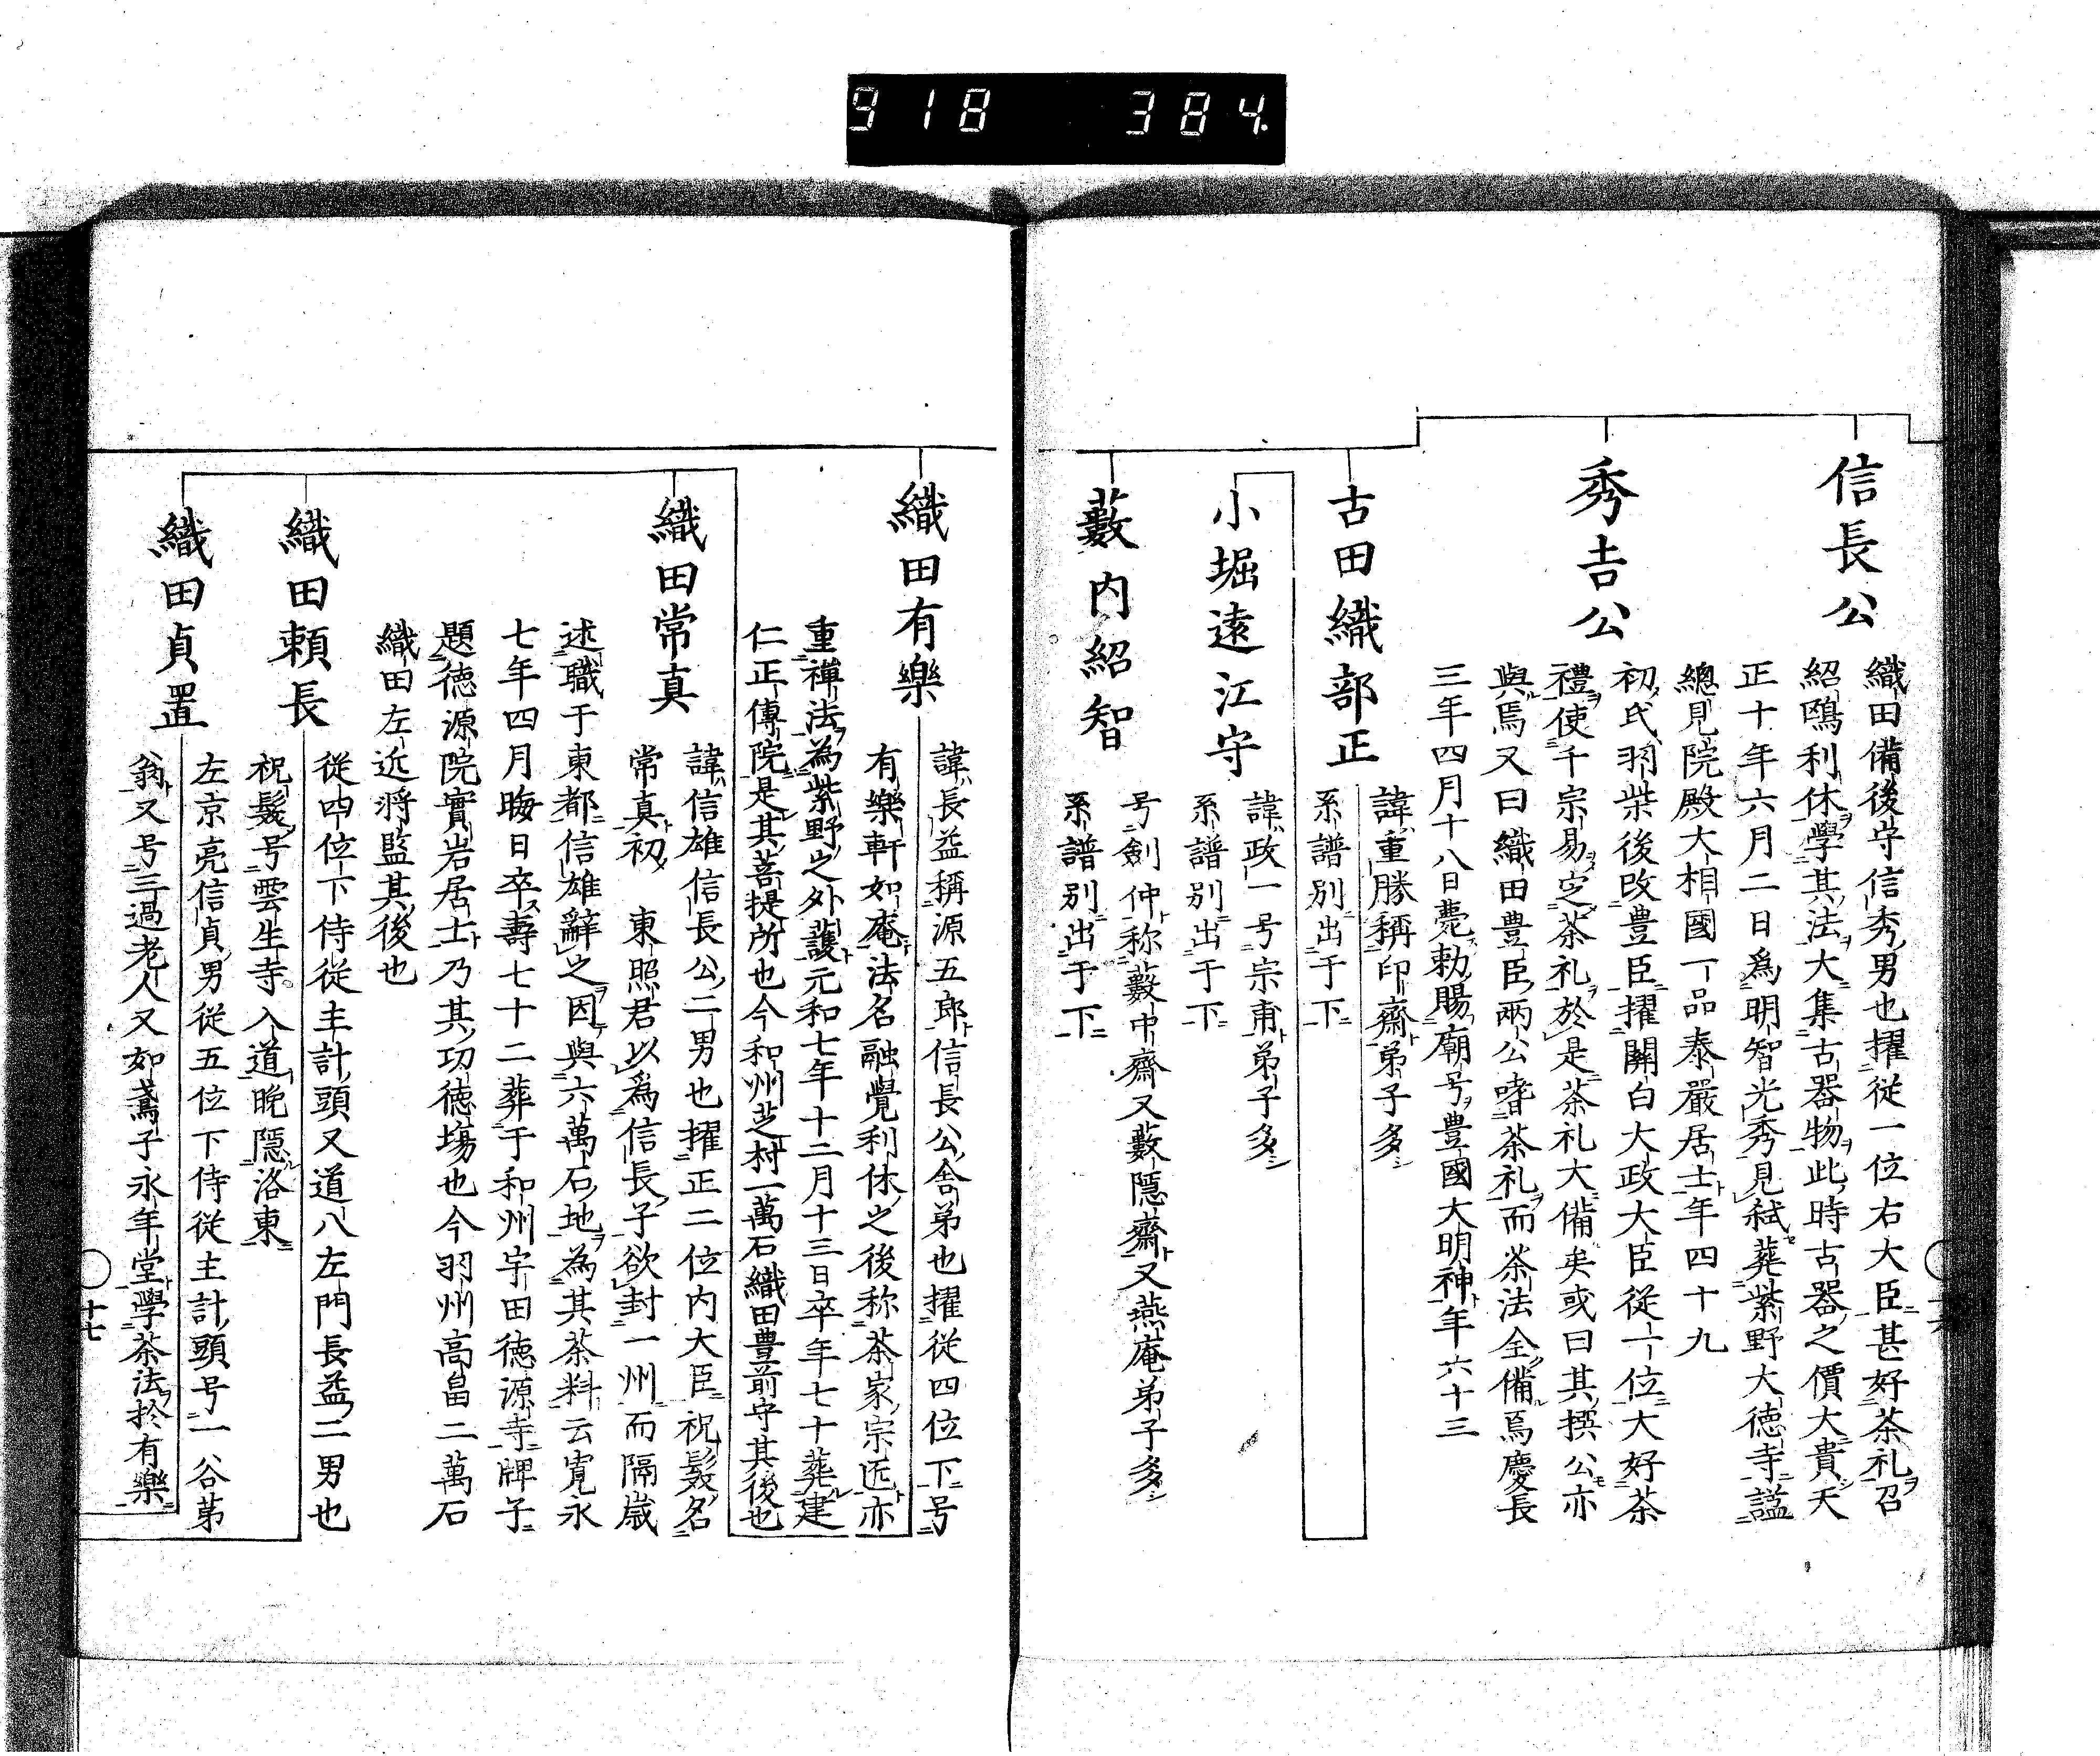 918 384.
信長公
織田備後守信秀男也擢従一位右大臣甚好茶礼召
紹鴎利休學其法大集古器物此時古器之價大貴天
正十年六月二日爲明智光秀見弑葬紫野大徳寺謚
總見院殿大相國一品泰嚴居士年四十九
秀吉公
初氏羽柴後改豊臣擢關白大政大臣従一位大好茶
禮使千宗易定茶礼於是茶礼大備矣或曰其撰公亦
與焉又曰織田豊臣兩公嗜茶礼而茶法全備焉慶長
三年四月十八日薨勅賜廟号豊國大明神年六十三
古田織部正
諱重勝稱印齋弟子多
系譜別出于下
小堀遠江守
諱政一号宗甫弟子多
系譜別出于下
藪内紹智
号劍仲称藪中齋又藪隠齋又燕庵弟子多
系譜別出于下
織田有樂
諱長益稱源五郎信長公舎弟也擢従四位下号
有樂軒如庵法名融覺利休之後称茶家宗匠亦
重禅法為紫野之外護元和七年十二月十三日卒年七十葬建
仁正傳院是其菩提所也今和州芝村一萬石織田豊前守其後也
織田常真
諱信雄信長公二男也擢正二位内大臣祝髮名
常真初 東照君以爲信長子欲封一州而隔歳
述職于東都信雄辭之因與六萬石地為其茶料云寛永
七年四月晦日卒壽七十二葬于和州宇田徳源寺牌子
題徳源院實岩居士乃其功徳塲也今羽州高畠二萬石
織田左近将監其後也
織田頼長
従四位下侍従主計頭又道八左門長益二男也
祝髮号雲生寺入道晩隠洛東
織田貞置
左京亮信貞男従五位下侍従主計頭号一谷苐
翁又号三過老人又如鳶子永年堂學茶法於有樂
十七